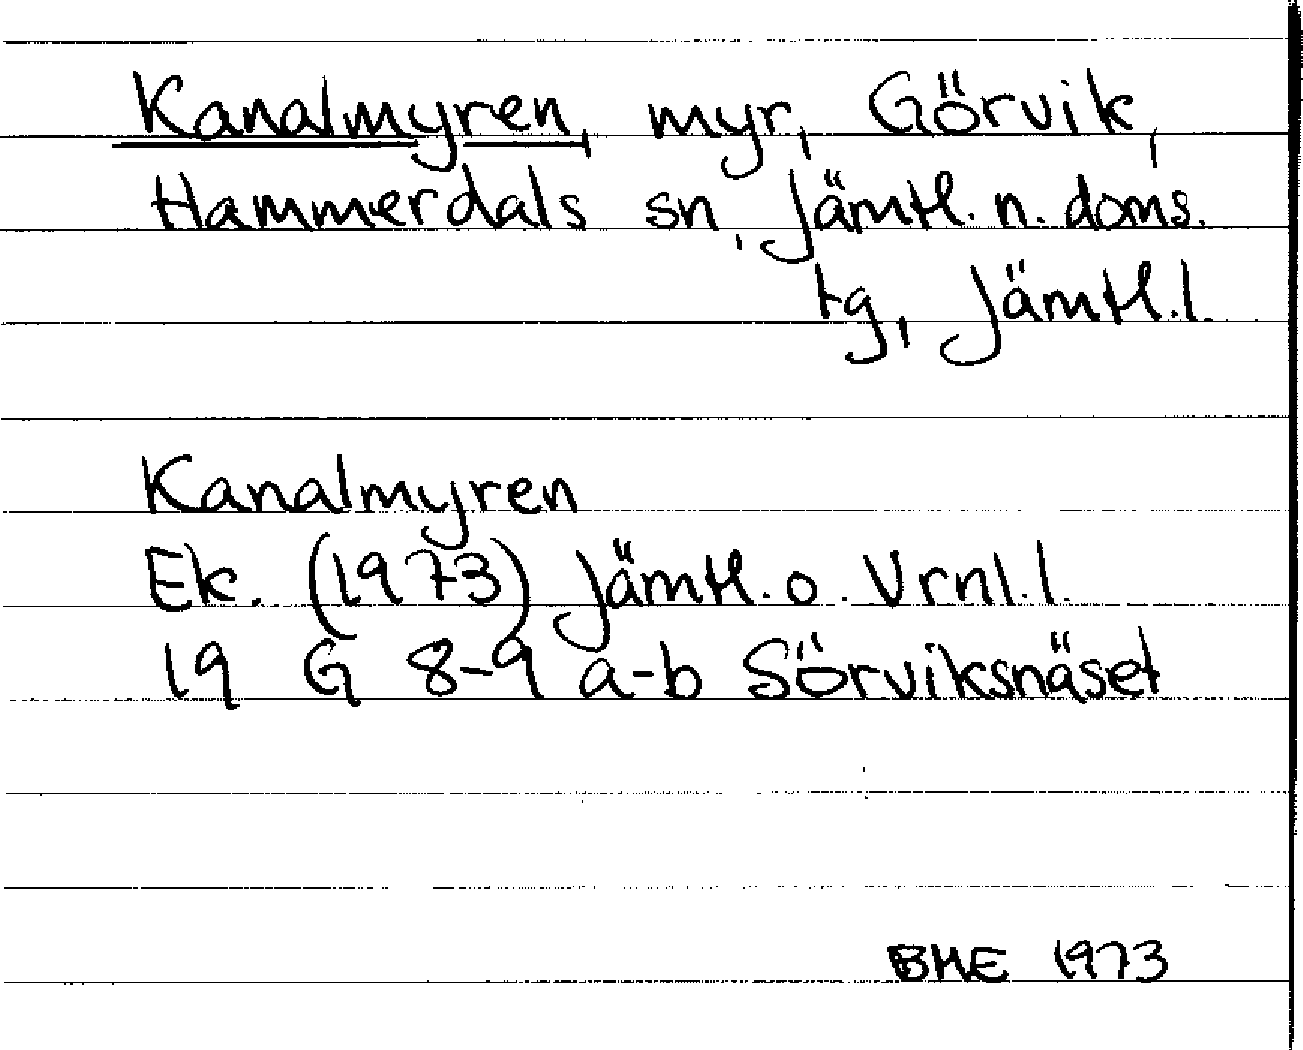 Kanalmyren, myr, Görvik,
Hammerdals sn, Jämtl. n. doms.
tg, Jämtl. l.
Kanalmyren
Ek. (1973) Jämtl. o. Vrnl. l.
19 G 8-9 a-b Sörviksnäset
BME 1973